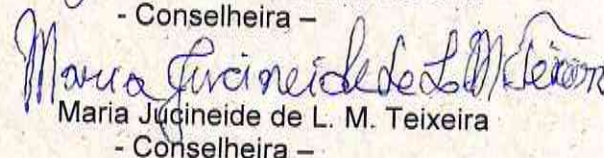 - Conselheira –
Maria Jucineide de L. M. Teixeira
Maria Jucineide de L. M. Teixeira
- Conselheira –